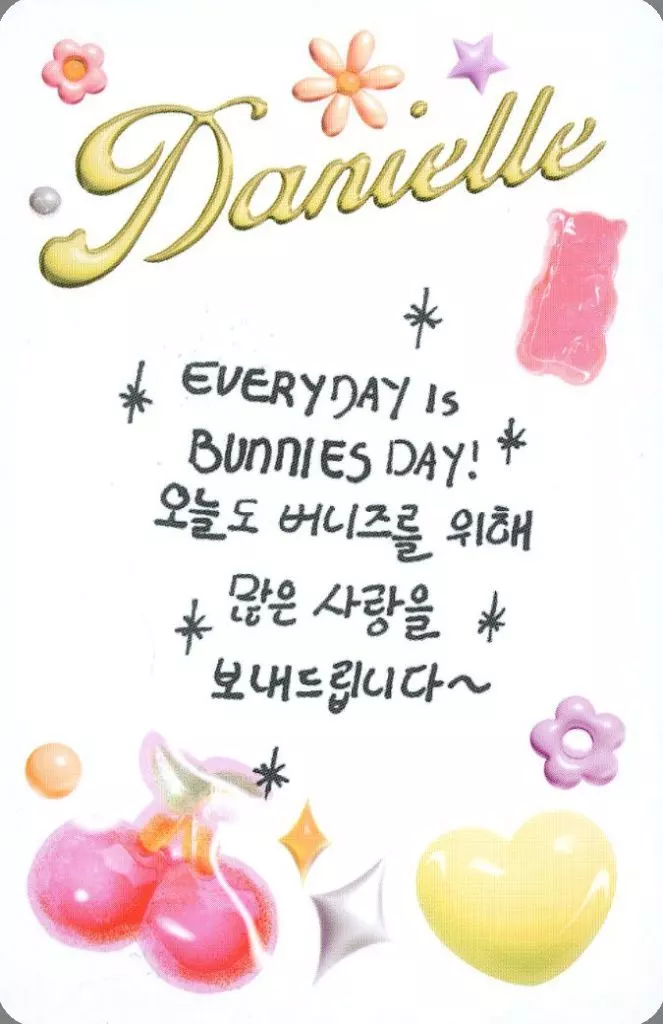 Danielle
EVERYDAY IS
BUNNIES DAY!
오늘도 버니즈를 위해
많은 사랑을
보내드립니다~